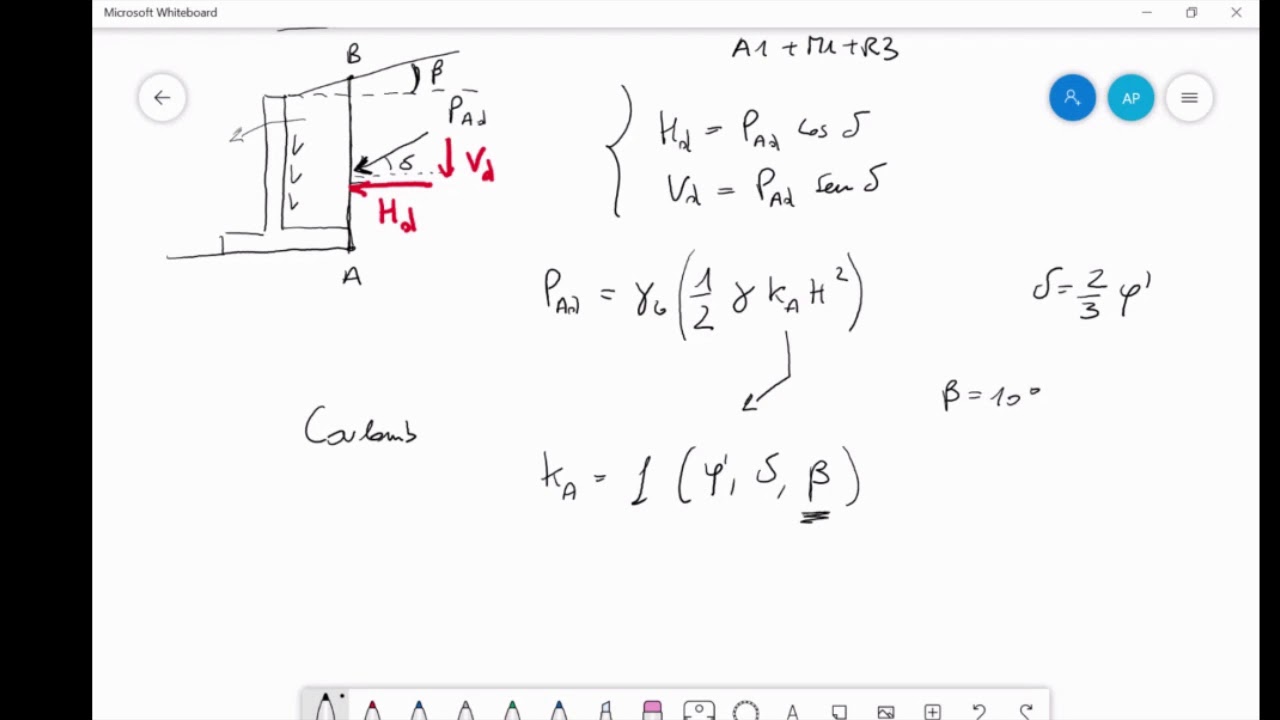 Microsoft Whiteboard
A1 + M1 + R3
B
β
P_Ad
δ
V_d
H_d
A
H_d = P_Ad cos δ
V_d = P_Ad sen δ
AP
P_Ad = γ_G (1/2 γ k_A H²)
δ = 2/3 φ'
β = 10°
Coulomb
k_A = f (φ', δ, β)
A